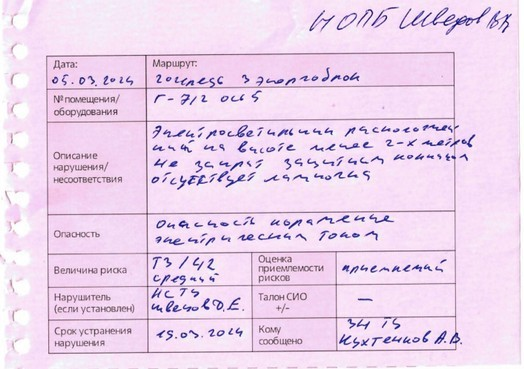 НОПБ Шведов В.В.
Дата:
05.03.2024
Маршрут:
2 очередь 3 энергоблок
№ помещения/
оборудования
Г-712 ось 5
Описание
нарушения/
несоответствия
Электросветильник расположен-
ный на высоте менее 2-х метров
не закрыт защитным
отсутствует лампочка
Опасность
опасность поражение
электрическим током
Величина риска
Т3/42
средний
Оценка
приемлемости
рисков
приемлемый
Нарушитель
(если установлен)
НС ТЦ
Швецов Д.Е.
Талон СИО
+/-
—
Срок устранения
нарушения
19.03.2024
Кому
сообщено
ЗН ТЦ
Кухтенков А.В.